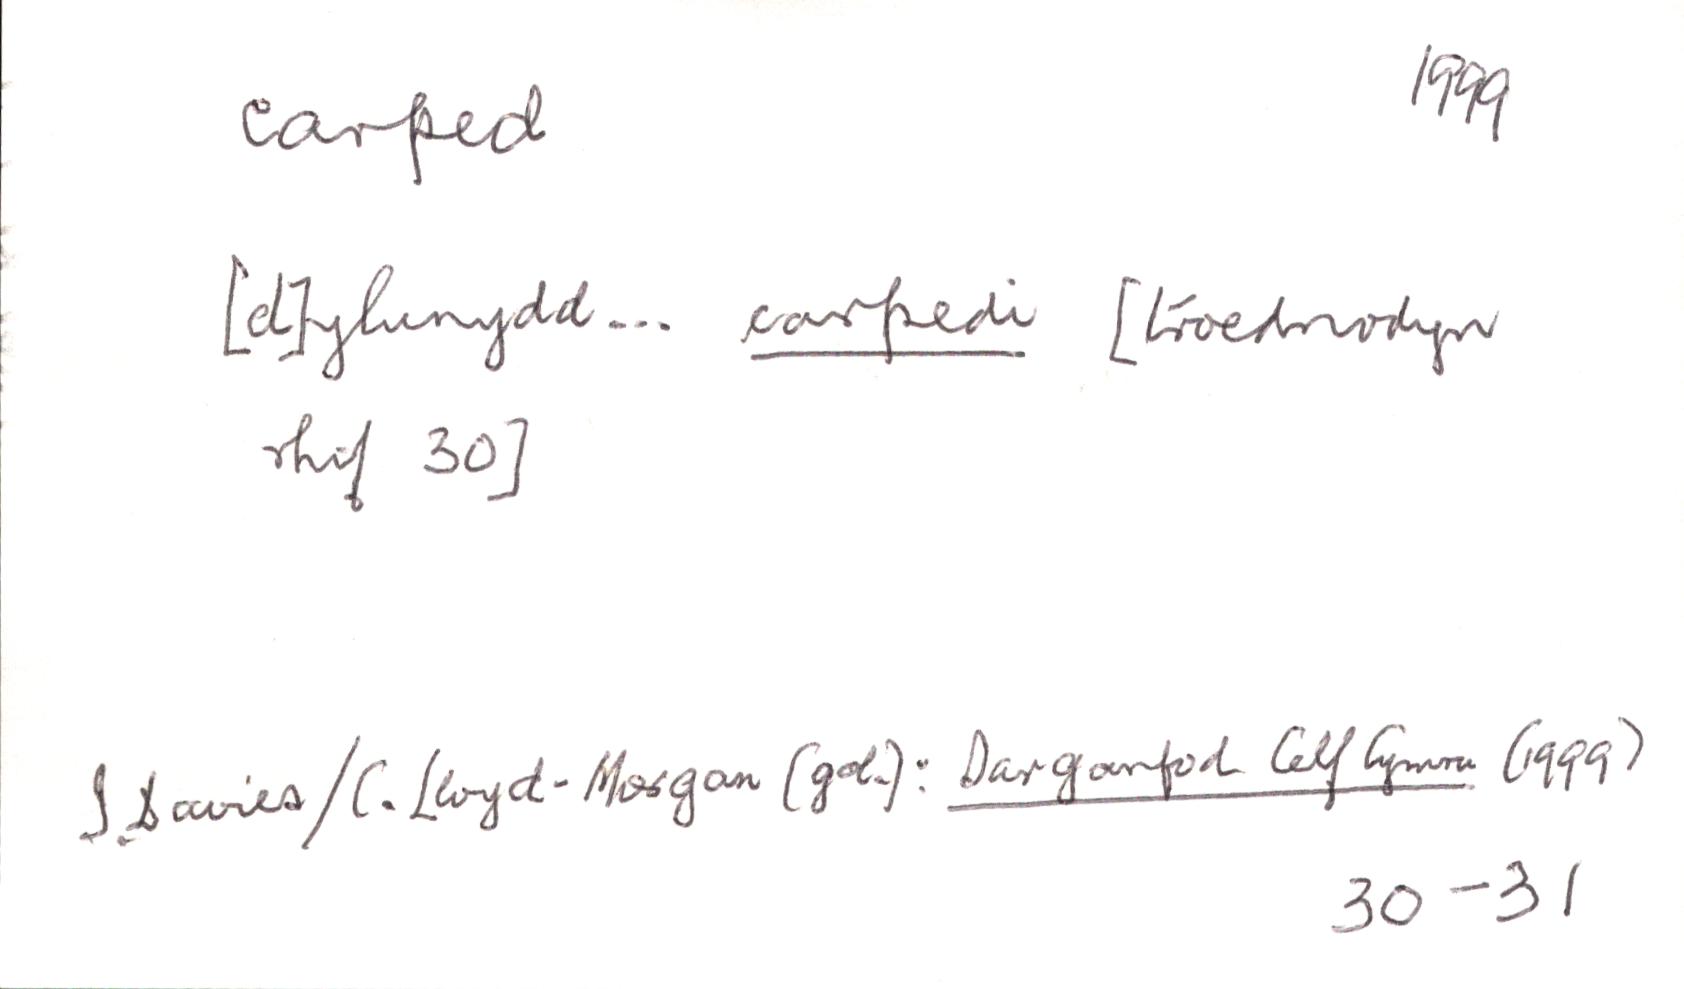 carped 1999
[d]ylunydd... carpedi [troednodyn
rhif 30]
I. Davies/C. Lloyd-Morgan (gol.): Darganfod Celf Cymru (1999)
30-31